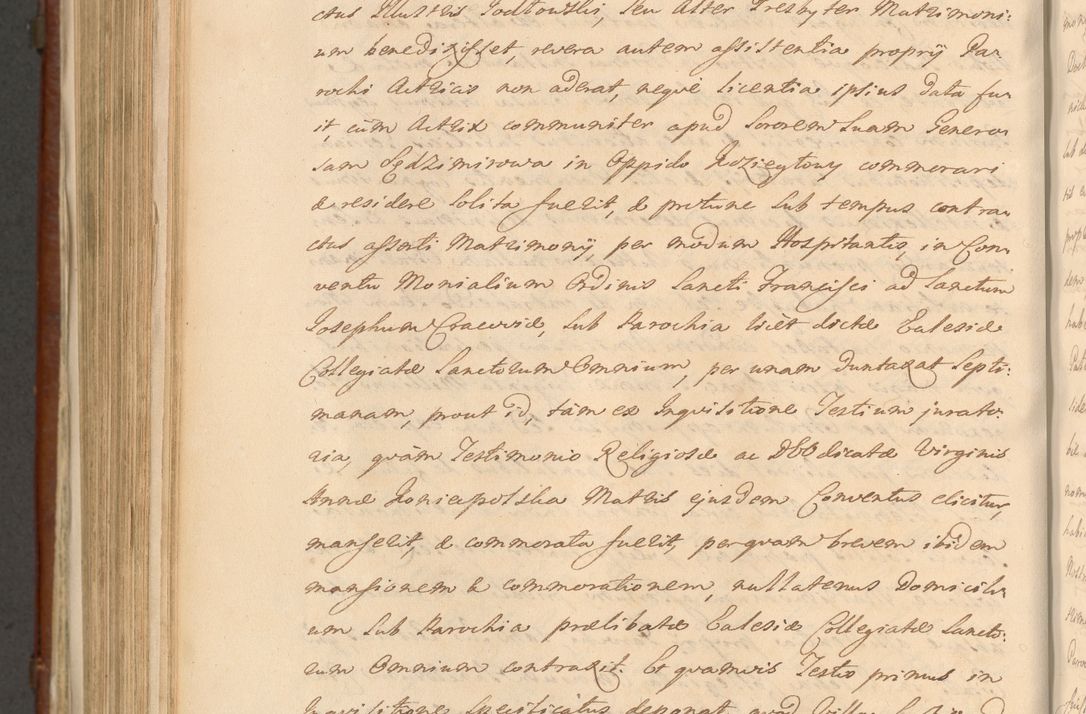 ctus Illustris Podłowski, seu alter Presbyter Matrimoni:
um benedixisset, revera autem assistentia proprij Pa-
rochi Actricis non aderat, neqve licentia ipsius data fu-
it, cùm Actrix communiter apud Sororem Suam Genero-
sam Sędzimirowa in Oppido Koziegłowy commorari
& residere solita fuerit, & pro tunc sub tempus contra-
ctus asserti Matrimonij, per modum Hospitantis, in Con-
ventu Monialium Ordinis Sancti Francisci ad Sanctum
Josephum Cracoviæ, sub Parochia licèt dictæ Ecclesiæ
Collegiatæ Sanctorum Omnium, per unam duntaxat Septi:
manam, prout id, tàm ex Inqvisitione Testium jurato:
ria, qvàm Testimonio Religiosæ ac DEO dicatæ Virginis
Annæ Koniecpolska Matris ejusdem Conventus elicitur,
manserit, & commorata fuerit, per qvam brevem ibidem
mansionem & commorationem, nullatenus Domicili-
um sub Parochia prælibatæ Ecclesiæ Collegiatæ Sancto:
rum Omnium contraxit. Et qvamvis Testis primus in
Inqvisitione specificatus deponat, qvod